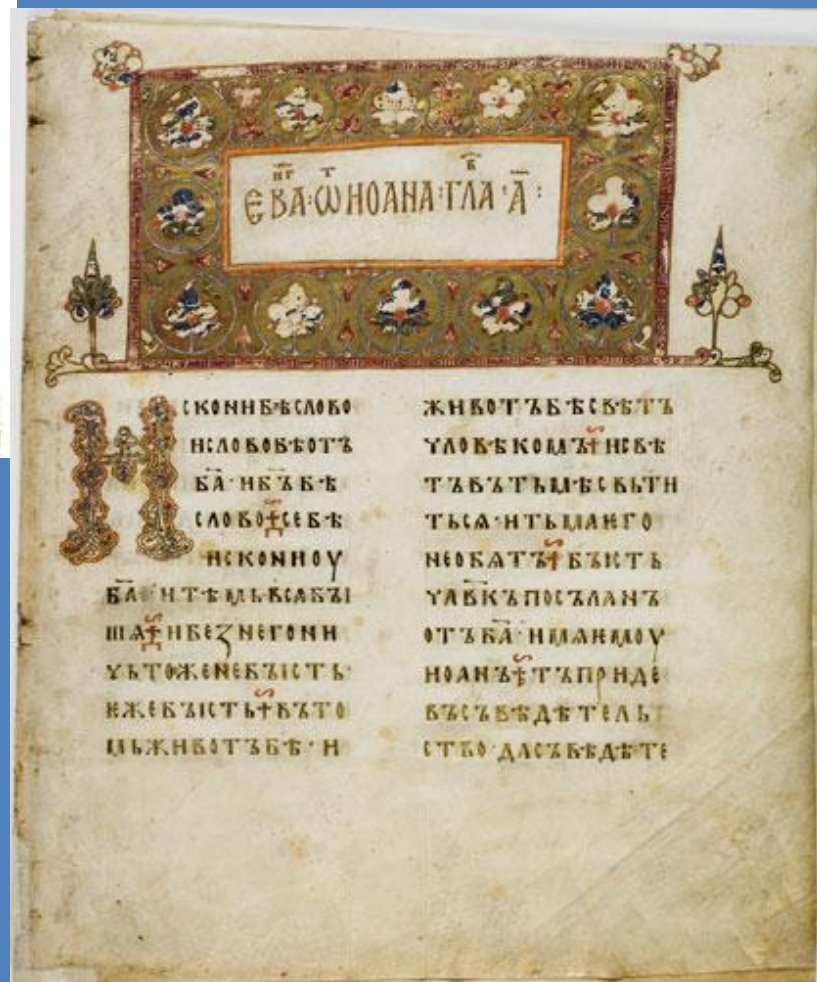 ЕВАⷩ҇ⷢ҇·Ѿ ИОАНА·ГЛАⷡ҇·А҃:
ИСКОНИБѢСЛОВО
ИСЛОВОБѢОТЪ
БА҃·ИБЪ҃БѢ
СЛОВО✝СЕБѢ
ИСКОНИОУ
БА҃·ИТѢМЬВСѦБꙐ
ШѦ✝ИБЕꙀНЕГОНИ
ЧЬТОЖЕНЕБꙐСТЬ·
ѤЖЕБꙐСТЬ✝ВЪТО
МЬЖИВОТЪБѢ·И
ЖИВОТЪБѢСВѢТЪ
ЧЛОВѢКОМЪ✝ИСВѢ
ТЪВЪТЬМѢСВЬТИ
ТЬСѦ·ИТЬМАѤГО
НЕОБѦТЪ✝БꙐСТЬ
ЧЛВ҃КЪПОСЪЛАНЪ
ОТЪБА҃·ИМѦѤМОУ
ИОАНЪ✝ТЪПРИДЕ
ВЪСЪВѢДѢТЕЛЬ
СТВО·ДАСЪВѢДѢТЕ